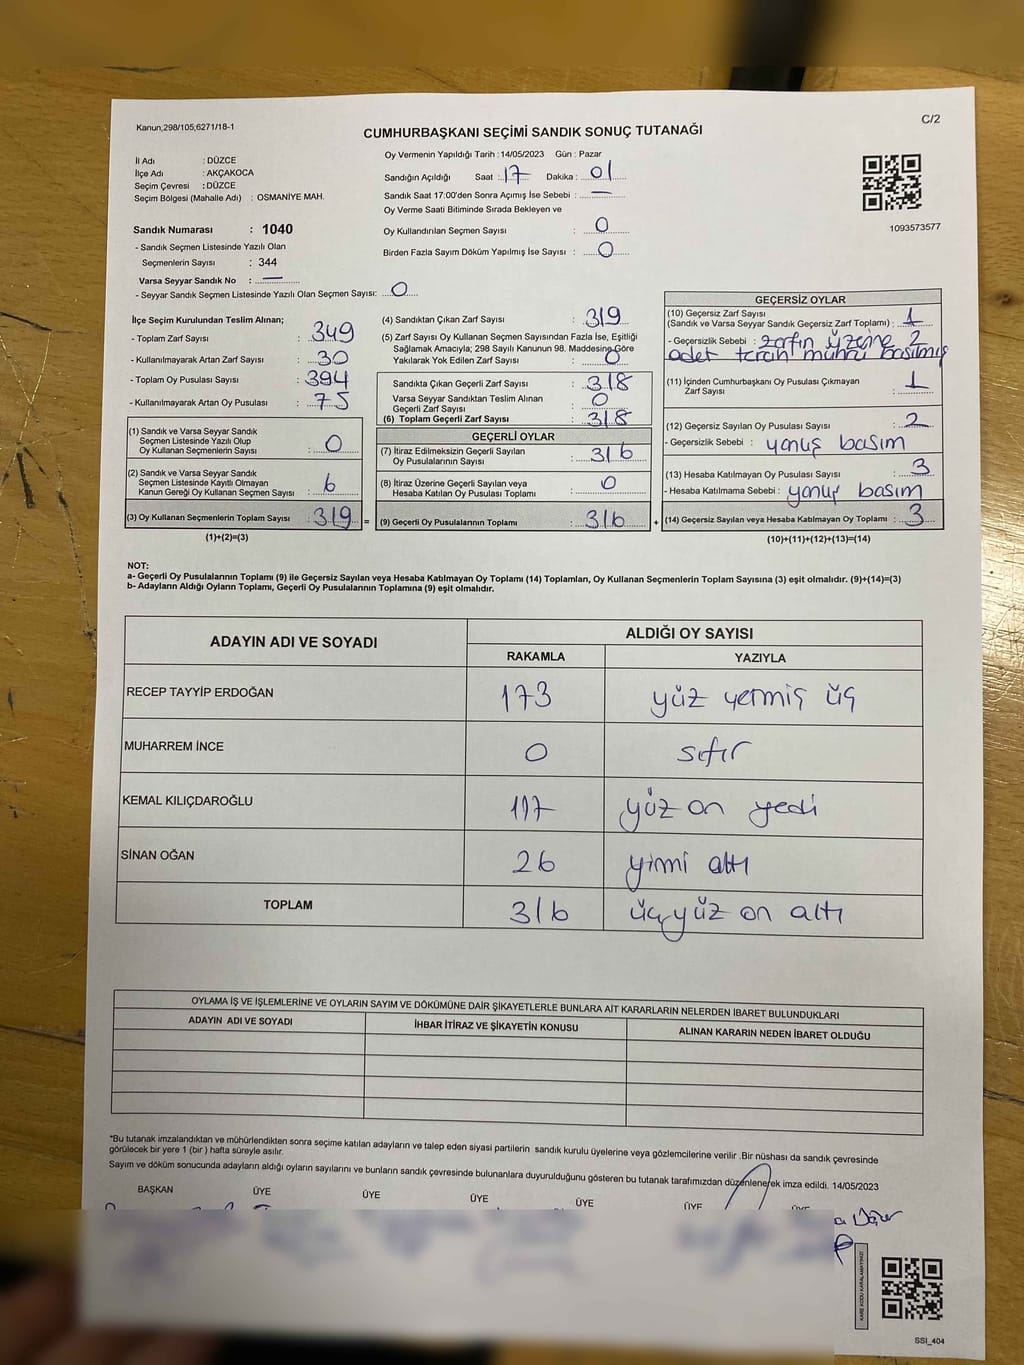 Kanun;298/105;6271/18-1
C/2
CUMHURBAŞKANI SEÇİMİ SANDIK SONUÇ TUTANAĞI
İl Adı : DÜZCE
İlçe Adı : AKÇAKOCA
Seçim Çevresi : DÜZCE
Seçim Bölgesi (Mahalle Adı) : OSMANİYE MAH.
Oy Vermenin Yapıldığı Tarih : 14/05/2023 Gün : Pazar
Sandığın Açıldığı Saat : 17 Dakika : 01
Sandık Saat 17:00'den Sonra Açımış İse Sebebi : —
Oy Verme Saati Bitiminde Sırada Bekleyen ve
Oy Kullandırılan Seçmen Sayısı : 0
Birden Fazla Sayım Döküm Yapılmış İse Sayısı : 0
1093573577
Sandık Numarası : 1040
- Sandık Seçmen Listesinde Yazılı Olan
Seçmenlerin Sayısı : 344
Varsa Seyyar Sandık No : —
- Seyyar Sandık Seçmen Listesinde Yazılı Olan Seçmen Sayısı: 0
İlçe Seçim Kurulundan Teslim Alınan;
- Toplam Zarf Sayısı : 349
- Kullanılmayarak Artan Zarf Sayısı : 30
- Toplam Oy Pusulası Sayısı : 394
- Kullanılmayarak Artan Oy Pusulası : 75
(1) Sandık ve Varsa Seyyar Sandık
Seçmen Listesinde Yazılı Olup
Oy Kullanan Seçmenlerin Sayısı : 0
(2) Sandık ve Varsa Seyyar Sandık
Seçmen Listesinde Kayıtlı Olmayan
Kanun Gereği Oy Kullanan Seçmen Sayısı : 6
(3) Oy Kullanan Seçmenlerin Toplam Sayısı : 319 =
(1)+(2)=(3)
(4) Sandıktan Çıkan Zarf Sayısı : 319
(5) Zarf Sayısı Oy Kullanan Seçmen Sayısından Fazla İse, Eşitliği
Sağlamak Amacıyla; 298 Sayılı Kanunun 98. Maddesine Göre
Yakılarak Yok Edilen Zarf Sayısı : 0
Sandıkta Çıkan Geçerli Zarf Sayısı : 318
Varsa Seyyar Sandıktan Teslim Alınan
Geçerli Zarf Sayısı : 0
(6) Toplam Geçerli Zarf Sayısı : 318
GEÇERLİ OYLAR
(7) İtiraz Edilmeksizin Geçerli Sayılan
Oy Pusulalarının Sayısı : 316
(8) İtiraz Üzerine Geçerli Sayılan veya
Hesaba Katılan Oy Pusulası Toplamı : 0
(9) Geçerli Oy Pusulalarının Toplamı : 316 +
GEÇERSİZ OYLAR
(10) Geçersiz Zarf Sayısı
(Sandık ve Varsa Seyyar Sandık Geçersiz Zarf Toplamı) : 1
- Geçersizlik Sebebi : zarfın üzerine 2
adet tercih mührü basılmış
(11) İçinden Cumhurbaşkanı Oy Pusulası Çıkmayan
Zarf Sayısı : 1
(12) Geçersiz Sayılan Oy Pusulası Sayısı : 2
- Geçersizlik Sebebi : yanuş basım
(13) Hesaba Katılmayan Oy Pusulası Sayısı : 3
- Hesaba Katılmama Sebebi : yanuş basım
(14) Geçersiz Sayılan veya Hesaba Katılmayan Oy Toplamı : 3
(10)+(11)+(12)+(13)=(14)
NOT:
a- Geçerli Oy Pusulalarının Toplamı (9) ile Geçersiz Sayılan veya Hesaba Katılmayan Oy Toplamı (14) Toplamları, Oy Kullanan Seçmenlerin Toplam Sayısına (3) eşit olmalıdır. (9)+(14)=(3)
b- Adayların Aldığı Oyların Toplamı, Geçerli Oy Pusulalarının Toplamına (9) eşit olmalıdır.
ADAYIN ADI VE SOYADI
ALDIĞI OY SAYISI
RAKAMLA YAZIYLA
RECEP TAYYİP ERDOĞAN 173 yüz yermiş üç
MUHARREM İNCE 0 sıfır
KEMAL KILIÇDAROĞLU 117 yüz on yedi
SİNAN OĞAN 26 yirmi altı
TOPLAM 316 üçyüz on altı
OYLAMA İŞ VE İŞLEMLERİNE VE OYLARIN SAYIM VE DÖKÜMÜNE DAİR ŞİKAYETLERLE BUNLARA AİT KARARLARIN NELERDEN İBARET BULUNDUKLARI
ADAYIN ADI VE SOYADI İHBAR İTİRAZ VE ŞİKAYETİN KONUSU ALINAN KARARIN NEDEN İBARET OLDUĞU
*Bu tutanak imzalandıktan ve mühürlendikten sonra seçime katılan adayların ve talep eden siyasi partilerin sandık kurulu üyelerine veya gözlemcilerine verilir .Bir nüshası da sandık çevresinde
görülecek bir yere 1 (bir ) hafta süreyle asılır.
Sayım ve döküm sonucunda adayların aldığı oyların sayılarını ve bunların sandık çevresinde bulunanlara duyurulduğunu gösteren bu tutanak tarafımızdan düzenlenerek imza edildi. 14/05/2023
BAŞKAN ÜYE ÜYE ÜYE ÜYE ÜYE
KARE KODU KARALAMAYINIZ!
SSI_404